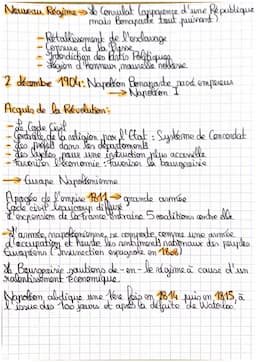 Nouveau Régime → Le Consulat (apparence d'une République
mais Bonaparte tout puissant)
- Rétablissement de l'esclavage
- Censure de la Presse
- Interdiction des Partis Politiques
- Légion d'honneur, nouvelle noblesse
2 décembre 1904: Napoléon Bonaparte sacré empereur
→ Napoléon I
Acquis de la Révolution:
- Le Code Civil
- Contrôle de la religion par l'État: Système de Concordat
- Les préfets dans les départements
- Des lycées pour une instruction plus accessible
- Favoriser l'économie: favoriser la bourgeoisie
→ Europe Napoléonienne
Apogée de l'empire 1811 → grande armée
Code civil beaucoup diffusé
L'expansion de la France entraîne 5 coalitions contre elle
→ L'armée napoléonienne, se comporte comme une armée
d'occupation et heurte les sentiments nationaux des peuples
européens (Insurrection espagnole en 1808)
La Bourgeoisie soutiens de - en - le régime à cause d'un
ralentissement économique.
Napoléon abdique une 1ère fois en 1814 puis en 1815, à
l'issue des 100 jours et après la défaite de Waterloo.